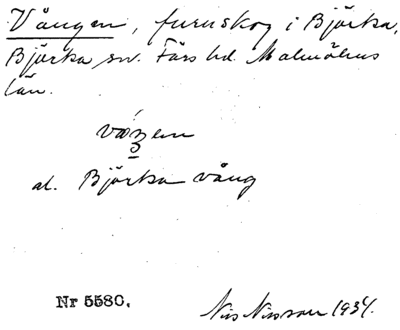 Vången, furuskog i Björka,
Björka sn. Färs hd. Malmöhus
län.
al. Björka vång
Nr 5580.
Nils Nilsson 1934.